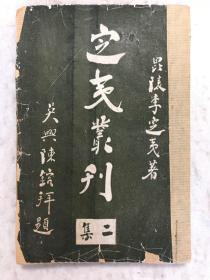 毘陵李定夷著
定夷叢刊
二集
吳興陳鎔拜題